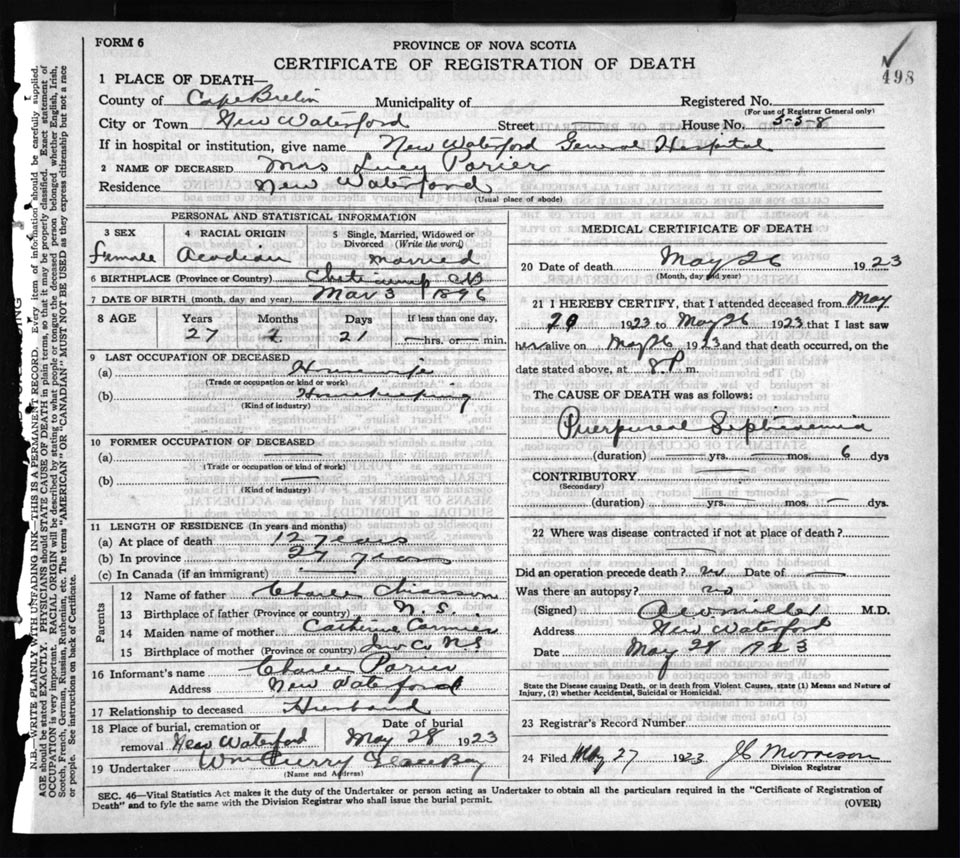 FORM 6
PROVINCE OF NOVA SCOTIA
CERTIFICATE OF REGISTRATION OF DEATH
498
1 PLACE OF DEATH—
County of Cape Breton Municipality of Registered No.
(For use of Registrar General only)
City or Town New Waterford Street House No. 5-5-8
If in hospital or institution, give name New Waterford General Hospital
2 NAME OF DECEASED Mrs Lucy Poirier
Residence New Waterford
(Usual place of abode)
PERSONAL AND STATISTICAL INFORMATION
3 SEX 4 RACIAL ORIGIN 5 Single, Married, Widowed or Divorced (Write the word)
Female Acadian Married
6 BIRTHPLACE (Province or Country) Cheticamp CB
7 DATE OF BIRTH (month, day and year) Mar 3 1896
8 AGE Years Months Days If less than one day,
27 2 21 — hrs. or — min.
9 LAST OCCUPATION OF DECEASED
(a) Housewife
(Trade or occupation or kind or work)
(b) Housekeeping
(Kind of industry)
10 FORMER OCCUPATION OF DECEASED
(a) —
(Trade or occupation or kind of work)
(b) —
(Kind of industry)
11 LENGTH OF RESIDENCE (In years and months)
(a) At place of death 12 years
(b) In province 27 years
(c) In Canada (if an immigrant) —
Parents
12 Name of father Charles Chiasson
13 Birthplace of father (Province or country) N.S.
14 Maiden name of mother Catherine Cormier
15 Birthplace of mother (Province or country) Inv Co N.S
16 Informant's name Charles Poirier
Address New Waterford
17 Relationship to deceased Husband
18 Place of burial, cremation or removal New Waterford Date of burial May 28 1923
19 Undertaker Wm Curry Glace Bay
(Name and Address)
MEDICAL CERTIFICATE OF DEATH
20 Date of death May 26 1923
(Month, day and year)
21 I HEREBY CERTIFY, that I attended deceased from May
20 1923 to May 26 1923 that I last saw
her alive on May 26 1923 and that death occurred, on the
date stated above, at 8 P m.
The CAUSE OF DEATH was as follows:
Puerpural Septicaemia
(duration) — yrs. — mos. 6 dys
CONTRIBUTORY —
(Secondary)
(duration) — yrs. — mos. — dys.
22 Where was disease contracted if not at place of death?
—
Did an operation precede death? no Date of —
Was there an autopsy? no
(Signed) Miller M.D.
Address New Waterford
Date May 28 1923
State the Disease causing Death, or in death from Violent Causes, state (1) Means and Nature of
Injury, (2) whether Accidental, Suicidal or Homicidal.
23 Registrar's Record Number
24 Filed May 27 1923 Morrison
Division Registrar
SEC. 46—Vital Statistics Act makes it the duty of the Undertaker or person acting as Undertaker to obtain all the particulars required in the "Certificate of Registration of
Death" and to fyle the same with the Division Registrar who shall issue the burial permit. (OVER)
N.B.—WRITE PLAINLY WITH UNFADING INK—THIS IS A PERMANENT RECORD. Every item of information should be carefully supplied.
AGE should be stated EXACTLY. PHYSICIANS should STATE CAUSE OF DEATH in plain terms, so that it may be properly classified. Exact statement of
OCCUPATION is very important. RACIAL ORIGIN will be described by stating to what people or tongue the deceased person belonged whether English, Irish,
Scotch, French, German, Russian, Ruthenian, etc. The terms "AMERICAN" OR "CANADIAN" MUST NOT BE USED as they express citizenship but not a race
or people. See instructions on back of Certificate.